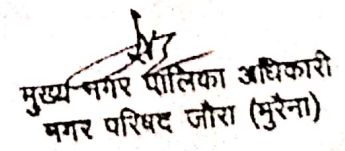 मुख्य नगर पालिका अधिकारी
नगर परिषद जौरा (मुरैना)